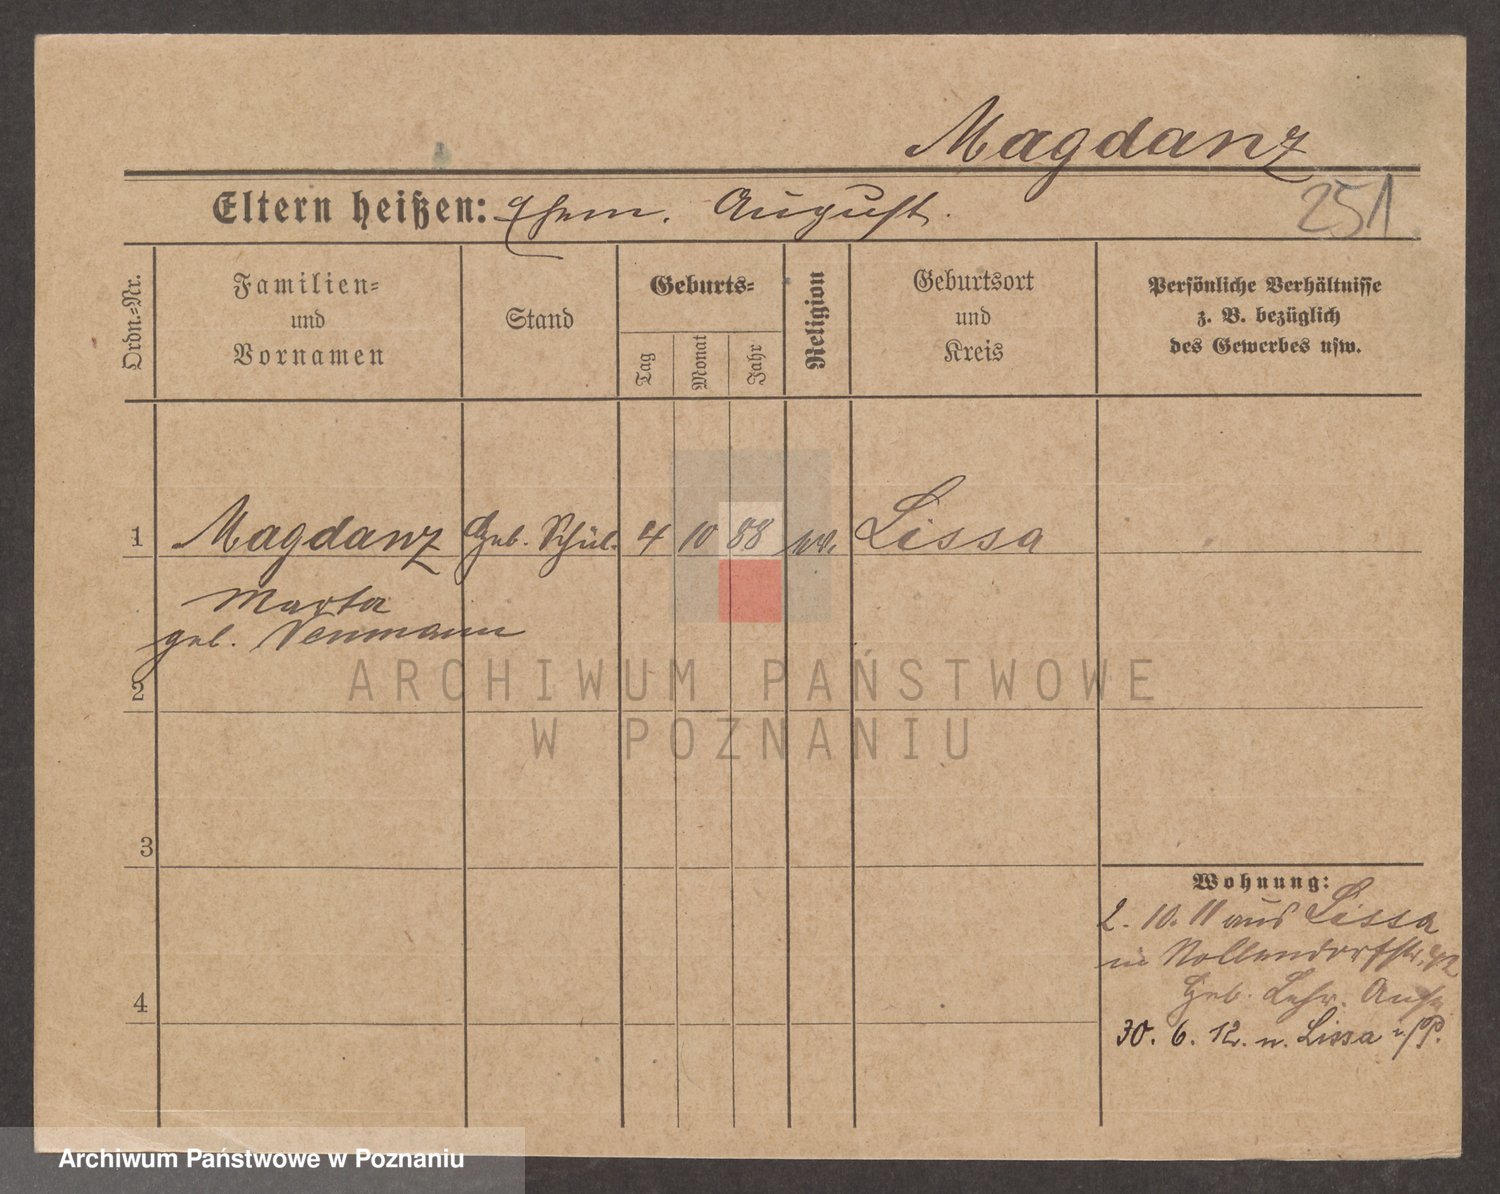 Magdanz
251
Eltern heißen: Ehem. August.
Ordn.=Nr.
Familien=
und
Vornamen
Stand
Geburts=
Tag
Monat
Jahr
Religion
Geburtsort
und
Kreis
Persönliche Verhältnisse
z. B. bezüglich
des Gewerbes usw.
1 Magdanz Heb. Schül. 4 10 88 ev. Lissa
Marta
geb. Neumann
2
ARCHIWUM PAŃSTWOWE
W POZNANIU
3
Wohnung:
2. 10. 11 aus Lissa
in Nollendorfstr. 42
Heb. Lehr. Anst.
4
30. 6. 12. n. Lissa i/P.
Archiwum Państwowe w Poznaniu